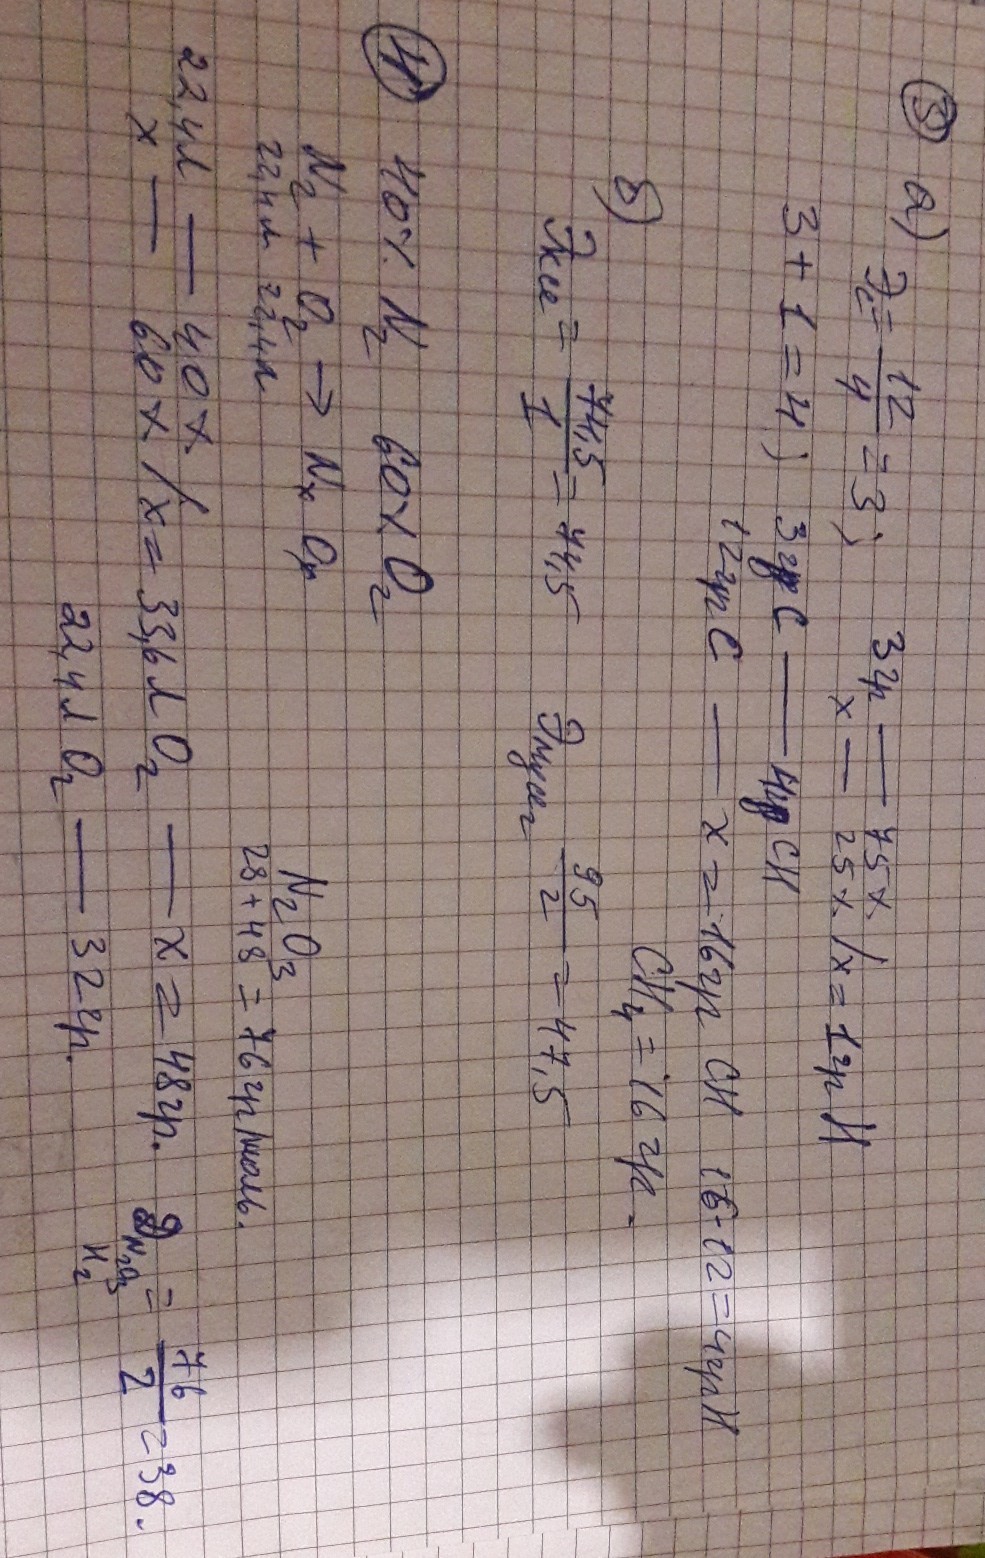 ③ а) Эc = 12/4 = 3; 3гр — 75%
x — 25% / x = 1гр H
3 + 1 = 4; 3гр C — 4гр CH
12гр C — x = 16гр CH 16-12=4гр H
CH4 = 16 гр.
б) = 74,5/1 = 74,5 95/2 = 47,5
④ 40% N2 60% O2
N2 + O2 → NxOy N2O3
22,4л 22,4л 28+48 = 76гр/моль.
22,4л — 40%
x — 60% / x = 33,6л O2 — x = 48гр. DN2O3 H2 = 76/2 = 38.
22,4л O2 — 32гр.